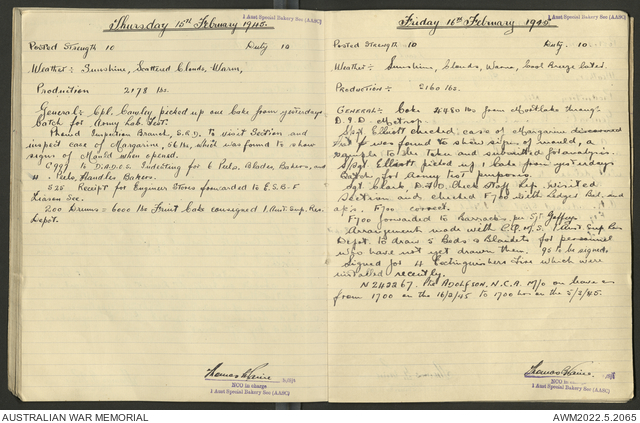 Thursday 15th February 1945.
1 Aust Special Bakery Sec (AASC)
Posted Strength 10 Duty 10
Weather:- Sunshine, Scattered Clouds, Warm,
Production 2178 lbs.
General:- Cpl. Cowley picked up one Cake from yesterdays
batch for Army Lab. Test.
Phoned Inspection Branch, S.R.D. to visit Section and
inspect case of Margarine, 56 lbs, which was found to show
signs of Mould when opened.
C997 to D.A.D.O.S Indenting for 6 Pubs, Blades, Bakers, and
4 Pubs, Handles Bakers.
525 Receipt for Engineer Stores forwarded to E.S.B-F
200 Drums = 6000 lbs Fruit Cake consigned 1 Aust. Sup. Res.
Depot.
NCO in charge
1 Aust Special Bakery Sec (AASC)
Friday 16th February 1945
1 Aust Special Bakery Sec (AASC)
Posted Strength - 10 Duty. 10
Weather:- Sunshine, Clouds, Warm, Cool Breeze later.
Production:- 2160 lbs.
General:- Coke 4480 lbs from Mortlake through
D.S.D. Metrop.
S/Sgt Elliott checked case of Margarine discovered
was found to show signs of mould, a
sample to be taken and submitted for analysis.
S/Sgt Elliott picked up 1 Cake from yesterdays
Batch for Army Test purposes.
Sgt Clark, Check Staff Rep. visited
Section and checked F700 with Ledger Bal. and
a/c's. F700 correct.
F700 forwarded to Barracks per
Arrangements made with C.Q.M.S. 1 Aust Sup
Depot. to draw 5 Beds & Blankets for personnel
who have not yet drawn them. 95 to be signed
signed for 4 Extinguishers Fire which were
installed recently.
N242267. Pte Adolfson, N.C.A. M/O on leave as
from 1700 on the 16/2/45 to 1700 hrs on the 5/3/45.
NCO in charge
1 Aust Special Bakery Sec (AASC)
AUSTRALIAN WAR MEMORIAL
AWM2022.5.2065